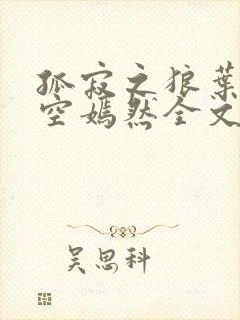 孤寂之狼叶
空嫣然全文
吴思科